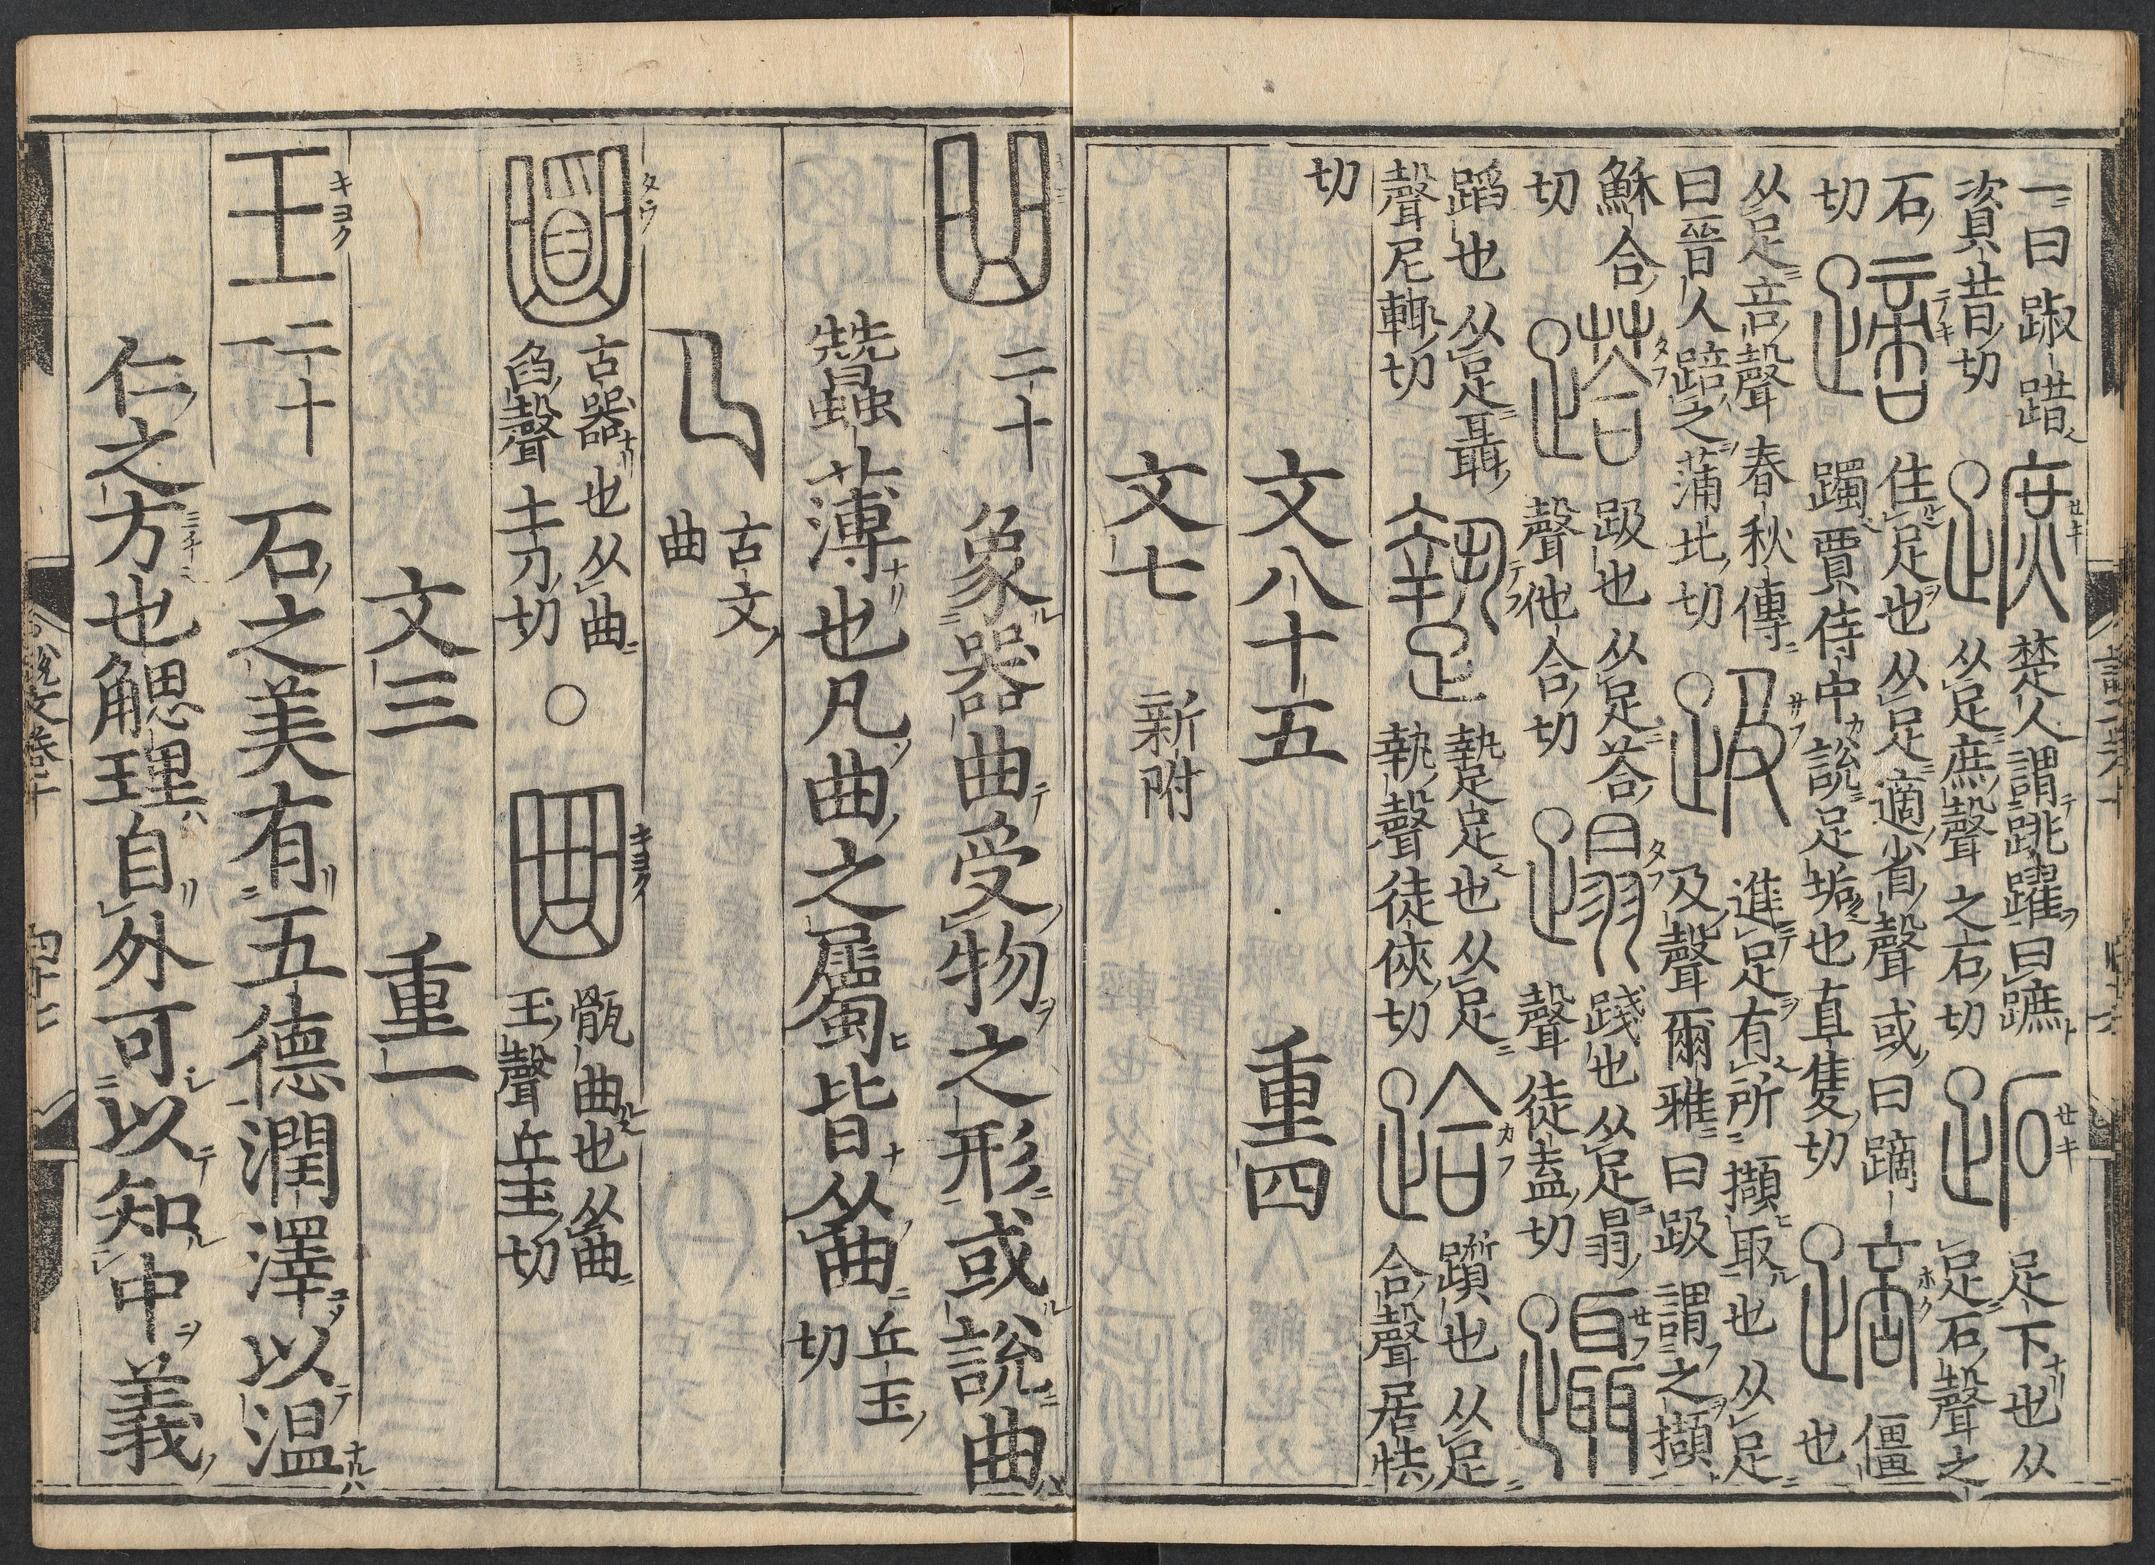 一曰踧踖資昔切 蹠 楚人謂跳躍曰蹠从足庶聲之石切 跖 足下也从足石聲之
石切 蹢 住足也从足適省聲或曰蹢躅賈侍中說足垢也直隻切 踣 僵也
从足咅聲春秋傳曰晉人踣之蒲北切 趿 進足有所擷取也从足及聲爾雅曰趿謂之擷
穌合切 趿也从足荅聲他合切 蹋 踐也从足𦐇聲徒盍切
蹈也从足聶聲尼輒切 足也从足執聲徒俠切 跲 躓也从足合聲居怯
切
文八十五 重四
文七 新附
曲 二十 象器曲受物之形或說曲
蠶薄也凡曲之屬皆从曲 丘玉切
古文曲
古器也从曲舀聲土刀切 ○ 骫曲也从曲玉聲丘玉切
文三 重一
王 二十一 石之美有五德潤澤以温
仁之方也䚡理自外可以知中義